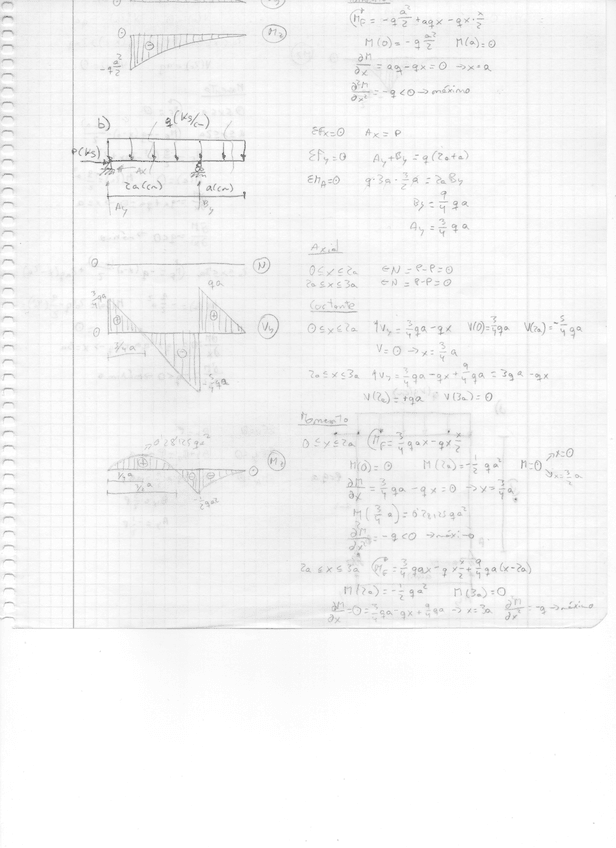 M_F = -q a²/2 + aqx - qx·x/2
M(0) = -q a²/2 M(a)=0
∂M/∂x = aq - qx = 0 → x=a
∂²M/∂x² = -q<0 → máximo
0
-q a²/2
⊖
b)
q (kg/cm)
P(kg)
Ax
2a(cm) a(cm)
Ay By
ΣFx=0 Ax = P
ΣFy=0 Ay+By = q(2a+a)
ΣMA=0 q·3a·3/2 a = 2aBy
By = 9/4 qa
Ay = 3/4 qa
Axial
0≤x≤2a N = P-P = 0
2a≤x≤3a N = P-P = 0
0 N
Cortante
0≤x≤2a Vy = 3/4 qa - qx V(0)=3/4 qa V(2a)=-5/4 qa
V=0 → x=3/4 a
2a≤x≤3a Vy = 3/4 qa - qx + 9/4 qa = 3qa - qx
V(2a)=+qa V(3a)=0
3/4 qa
qa
⊕
⊖
⊕
0 Vy
3/4 a
-5/4 qa
Momento
0≤x≤2a M_F = 3/4 qax - qx x/2
M(0)=0 M(2a)=-1/2 qa² M=0 x=0
x=3/2 a
∂M/∂x = 3/4 qa - qx = 0 → x=3/4 a
M(3/4 a) = 0'28125qa²
∂²M/∂x² = -q<0 → máximo
0'28125qa²
⊕
⊖
3/4 a
3/2 a
-1/2 qa²
0
2a≤x≤3a M_F = 3/4 qax - qx x/2 + 9/4 qa(x-2a)
M(2a)=-1/2 qa² M(3a)=0
∂M/∂x = 0 = 3/4 qa - qx + 9/4 qa → x=3a ∂²M/∂x² = -q → máximo